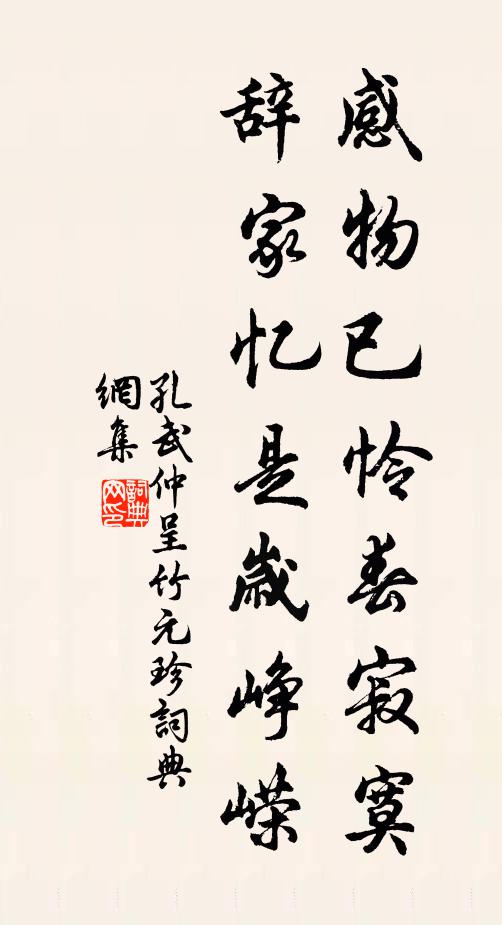 感物已怜春寂寞
辞家忆是岁峥嵘
孔武仲呈竹元珍词典
網集
詞典
网印